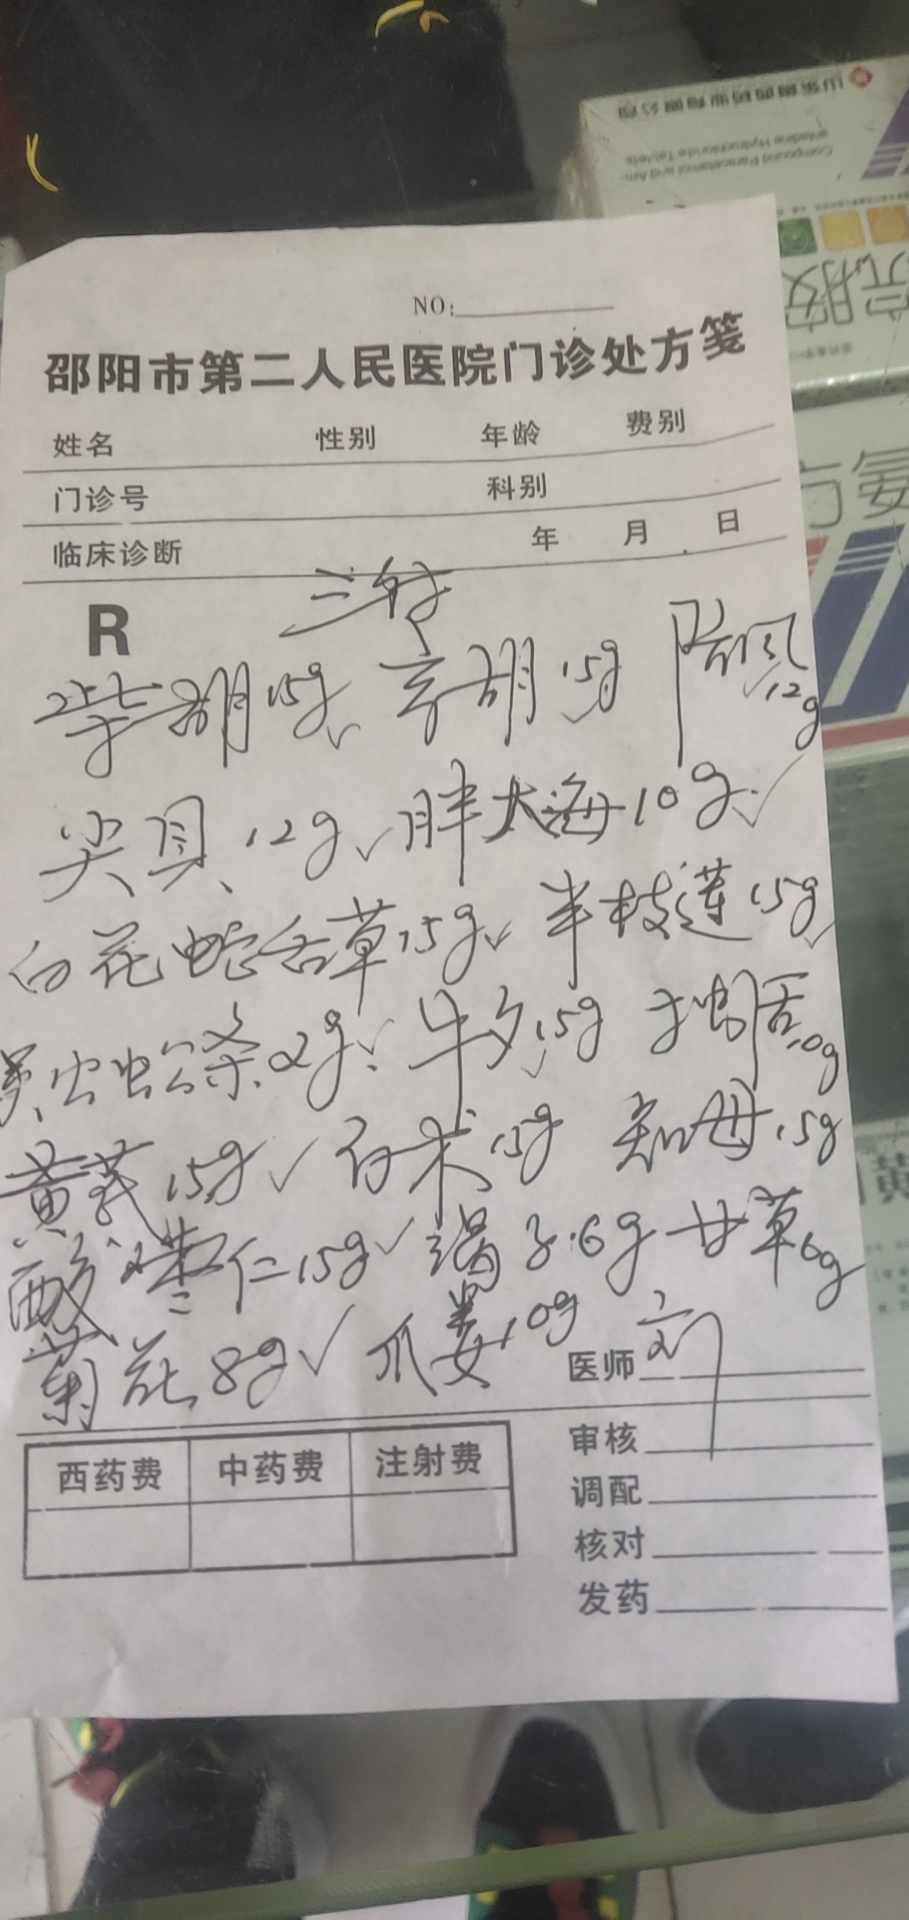 山东鲁西药业有限公司
Compound Paracetamol and Am-
antadine Hydrochloride Tablets
NO:
邵阳市第二人民医院门诊处方笺
姓名 性别 年龄 费别
门诊号 科别
临床诊断 年 月 日
R
柴胡15g 前胡15g 防风12g
尖贝12g 胖大海10g
白花蛇舌草15g 半枝莲15g
2g 牛夕15g 10g
黄芪15g 白术15g 知母15g
酸枣仁15g 6g 甘草6g
菊花8g 爪娄10g
医师 刘
审核
西药费 中药费 注射费
调配
核对
发药